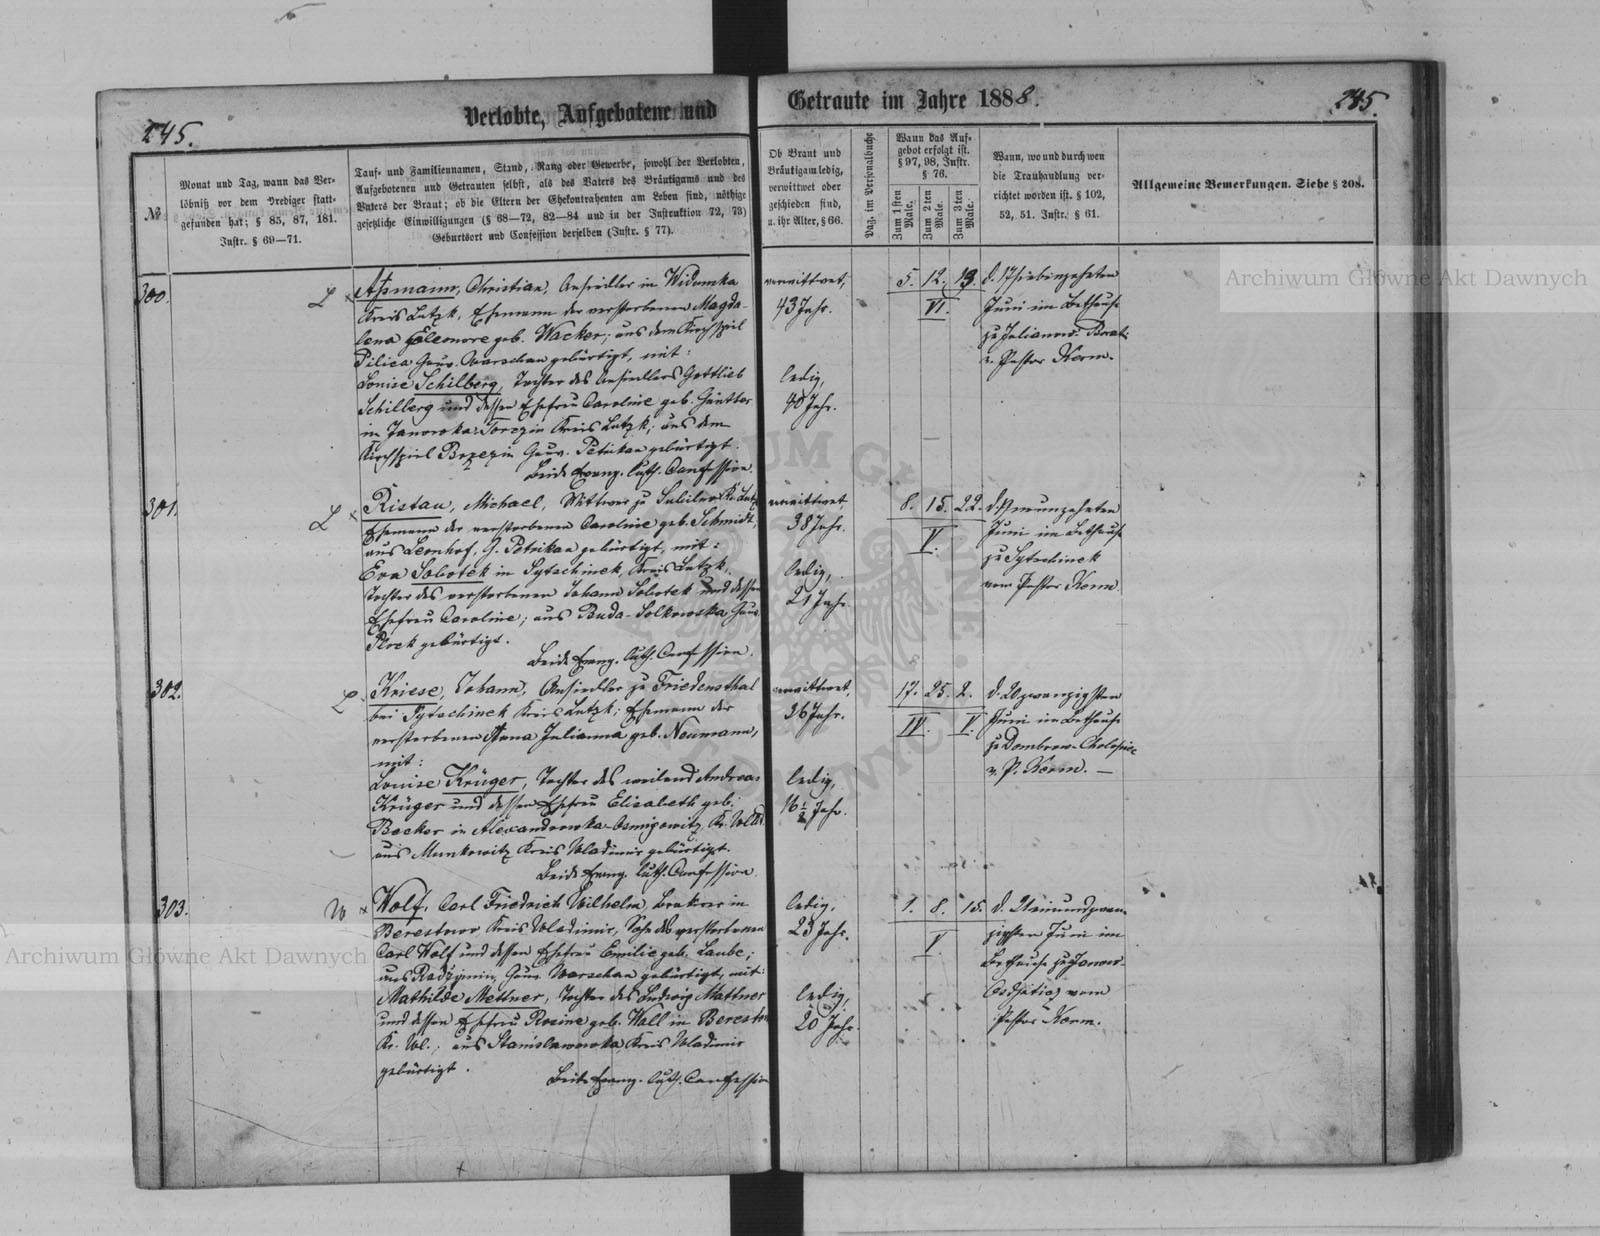 245.
Verlobte, Aufgebotene und
№
Monat und Tag, wann das Ver-
löbniß vor dem Prediger statt-
gefunden hat; § 85, 87, 181.
Instr. § 69—71.
Tauf- und Familiennamen, Stand, Rang oder Gewerbe, sowohl der Verlobten,
Aufgebotenen und Getrauten selbst, als des Vaters des Bräutigams und des
Vaters der Braut; ob die Eltern der Ehekontrahenten am Leben sind, nöthige
gesetzliche Einwilligungen (§ 68—72, 82—84 und in der Instruktion 72, 73)
Geburtsort und Confession derselben (Instr. § 77).
300.
L × Assmann, Christian, Ansiedler in Widumka
Kreis Lutzk, Ehemann der verstorbenen Magda-
lena Eleonore geb. Wacker; aus dem Kirchspiel
Pilica Gouv. Warschau gebürtigt, mit:
Louise Schilberg, Tochter des Ansiedlers Gottlieb
Schilberg und dessen Ehefrau Caroline geb. Günther
in Janowka-Torczin Kreis Lutzk; aus dem
Kirchspiel Brzezin Gouv. Petrikau gebürtigt.
Beide Evang. luth. Confession.
301.
L × Ristau, Michael, Wittwer zu Kr. Lutzk
Ehemann der verstorbenen Caroline geb. Schmidt,
aus Leonhof, G. Petrikau gebürtigt, mit:
Eva Sobotek in Sytschinek, Kreis Lutzk,
Tochter des verstorbenen Johann Sobotek und dessen
Ehefrau Caroline; aus Buda-Solkowska, Gouv.
Plock gebürtigt.
Beide Evang. luth. Confession.
302.
L Kriese, Johann, Ansiedler zu Friedensthal
bei Sytschinek Kreis Lutzk; Ehemann der
verstorbenen Anna Julianna geb. Neumann,
mit:
Louise Krüger, Tochter des weiland Andreas
Krüger und dessen Ehefrau Elisabeth geb.
Becker in Alexandrowka-Osmigowitz, Kr.
aus Munkowitz Kreis Wladimir gebürtigt.
Beide Evang. luth. Confession.
303.
W × Wolf, Carl Friedrich Wilhelm, in
Berestowo Kreis Wladimir, Sohn des verstorbenen
Carl Wolf und dessen Ehefrau Emilie geb. Laube;
aus Radzymin, Gouv. Warschau gebürtigt, mit:
Mathilde Mettner, Tochter des Ludwig Mattner
und dessen Ehefrau Rosine geb. Wall in
Kr. Wl.; aus Stanislawowka, Kreis Wladimir
gebürtigt.
Beide Evang. luth. Confession
Getraute im Jahre 1888.
245.
Ob Braut und
Bräutigam ledig,
verwittwet oder
geschieden sind,
u. ihr Alter, § 66.
Pag. im Personalbuche
Wann das Auf-
gebot erfolgt ist.
§ 97, 98, Instr.
§ 76.
Zum 1 sten Male.
Zum 2 ten Male.
Zum 3 ten Male.
Wann, wo und durch wen
die Trauhandlung ver-
richtet worden ist. § 102,
52, 51. Instr. § 61.
Allgemeine Bemerkungen. Siehe § 208.
verwittwet,
43 Jahr.
ledig,
40 Jahr.
5. 12. 19.
VI.
d. 17 siebenzehnten
Juni im Bethause
zu Julianow-
v. Pastor Kerm.
verwittwet,
38 Jahr.
ledig,
21 Jahr.
8. 15. 22.
V.
d. 19 neunzehnten
Juni im Bethause
zu Sytschinek
vom Pastor Kerm.
verwittwet,
36 Jahr.
ledig,
16 ½ Jahr.
17. 25. 2.
IV. V.
d. 20 zwanzigsten
Juni im Bethause
zu Dombrow-
v. P. Kerm. —
ledig,
23 Jahr.
ledig,
20 Jahr.
1. 8. 15.
V.
d. 21 einundzwan-
zigsten Juni im
Bethause zu Janow-
vom
Pastor Kerm.
Archiwum Główne Akt Dawnych
Archiwum Główne Akt Dawnych